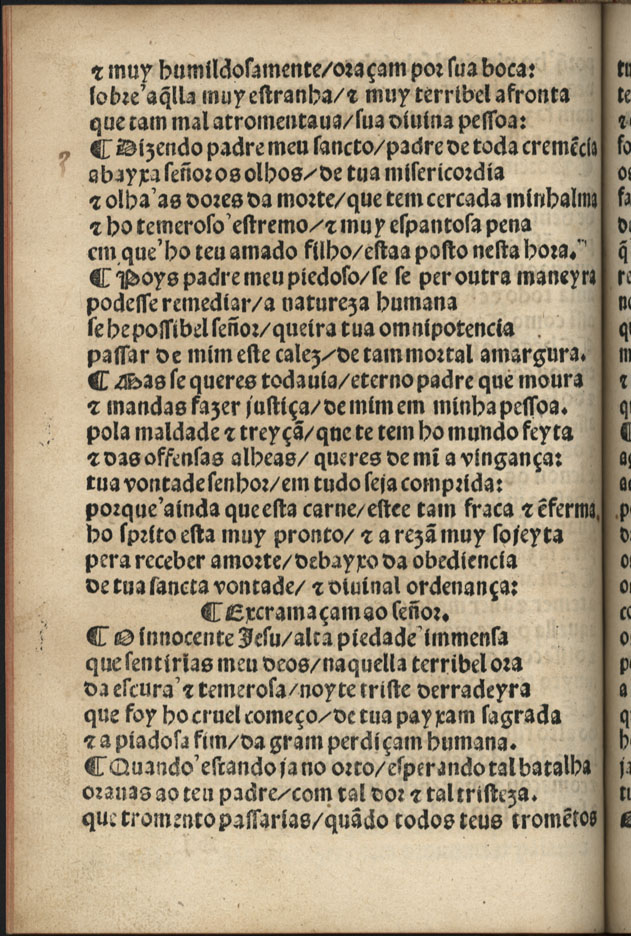 ⁊ muy humildosamente/oraçam por sua boca:
sobre'aq̃lla muy estranha/⁊ muy terribel afronta
que tam mal atromentaua/sua diuina pessoa:
¶ Dizendo padre meu sancto/padre de toda cremẽcia
abayxa señor os olhos/de tua misericordia
⁊ olha'as dores da morte/que tem cercada minhalma
⁊ ho temeroso'estremo/⁊ muy espantosa pena
em que'ho teu amado filho/estaa posto nesta hora.
¶ Poys padre meu piedoso/se se per outra maneyra
podesse remediar/a natureza humana
se he possibel señor/queira tua omnipotencia
passar de mim este calez/de tam mortal amargura.
¶ Mas se queres todauia/eterno padre que moura
⁊ mandas fazer justiça/de mim em minha pessoa.
pola maldade ⁊ treyçã/que te tem ho mundo feyta
⁊ das offensas alheas/ queres de mĩ a vingança:
tua vontade senhor/em tudo seja comprida:
porque'ainda que esta carne/estee tam fraca ⁊ ẽferma,
ho sprito esta muy pronto/ ⁊ a rezã muy sojeyta
pera receber amorte/debayxo da obediencia
de tua sancta vontade/ ⁊ diuinal ordenança:
¶ Excramaçam ao señor.
¶ O innocente Jesu/alta piedade'immensa
que sentirias meu deos/naquella terribel ora
da escura'⁊ temerosa/noyte triste derradeyra
que foy ho cruel começo/de tua payxam sagrada
⁊ a piadosa fim/da gram perdiçam humana.
¶ Quando'estando ja no orto/esperando tal batalha
orauas ao teu padre/com tal dor ⁊ tal tristeza.
que tromento passarias/quãdo todos teus tromẽtos